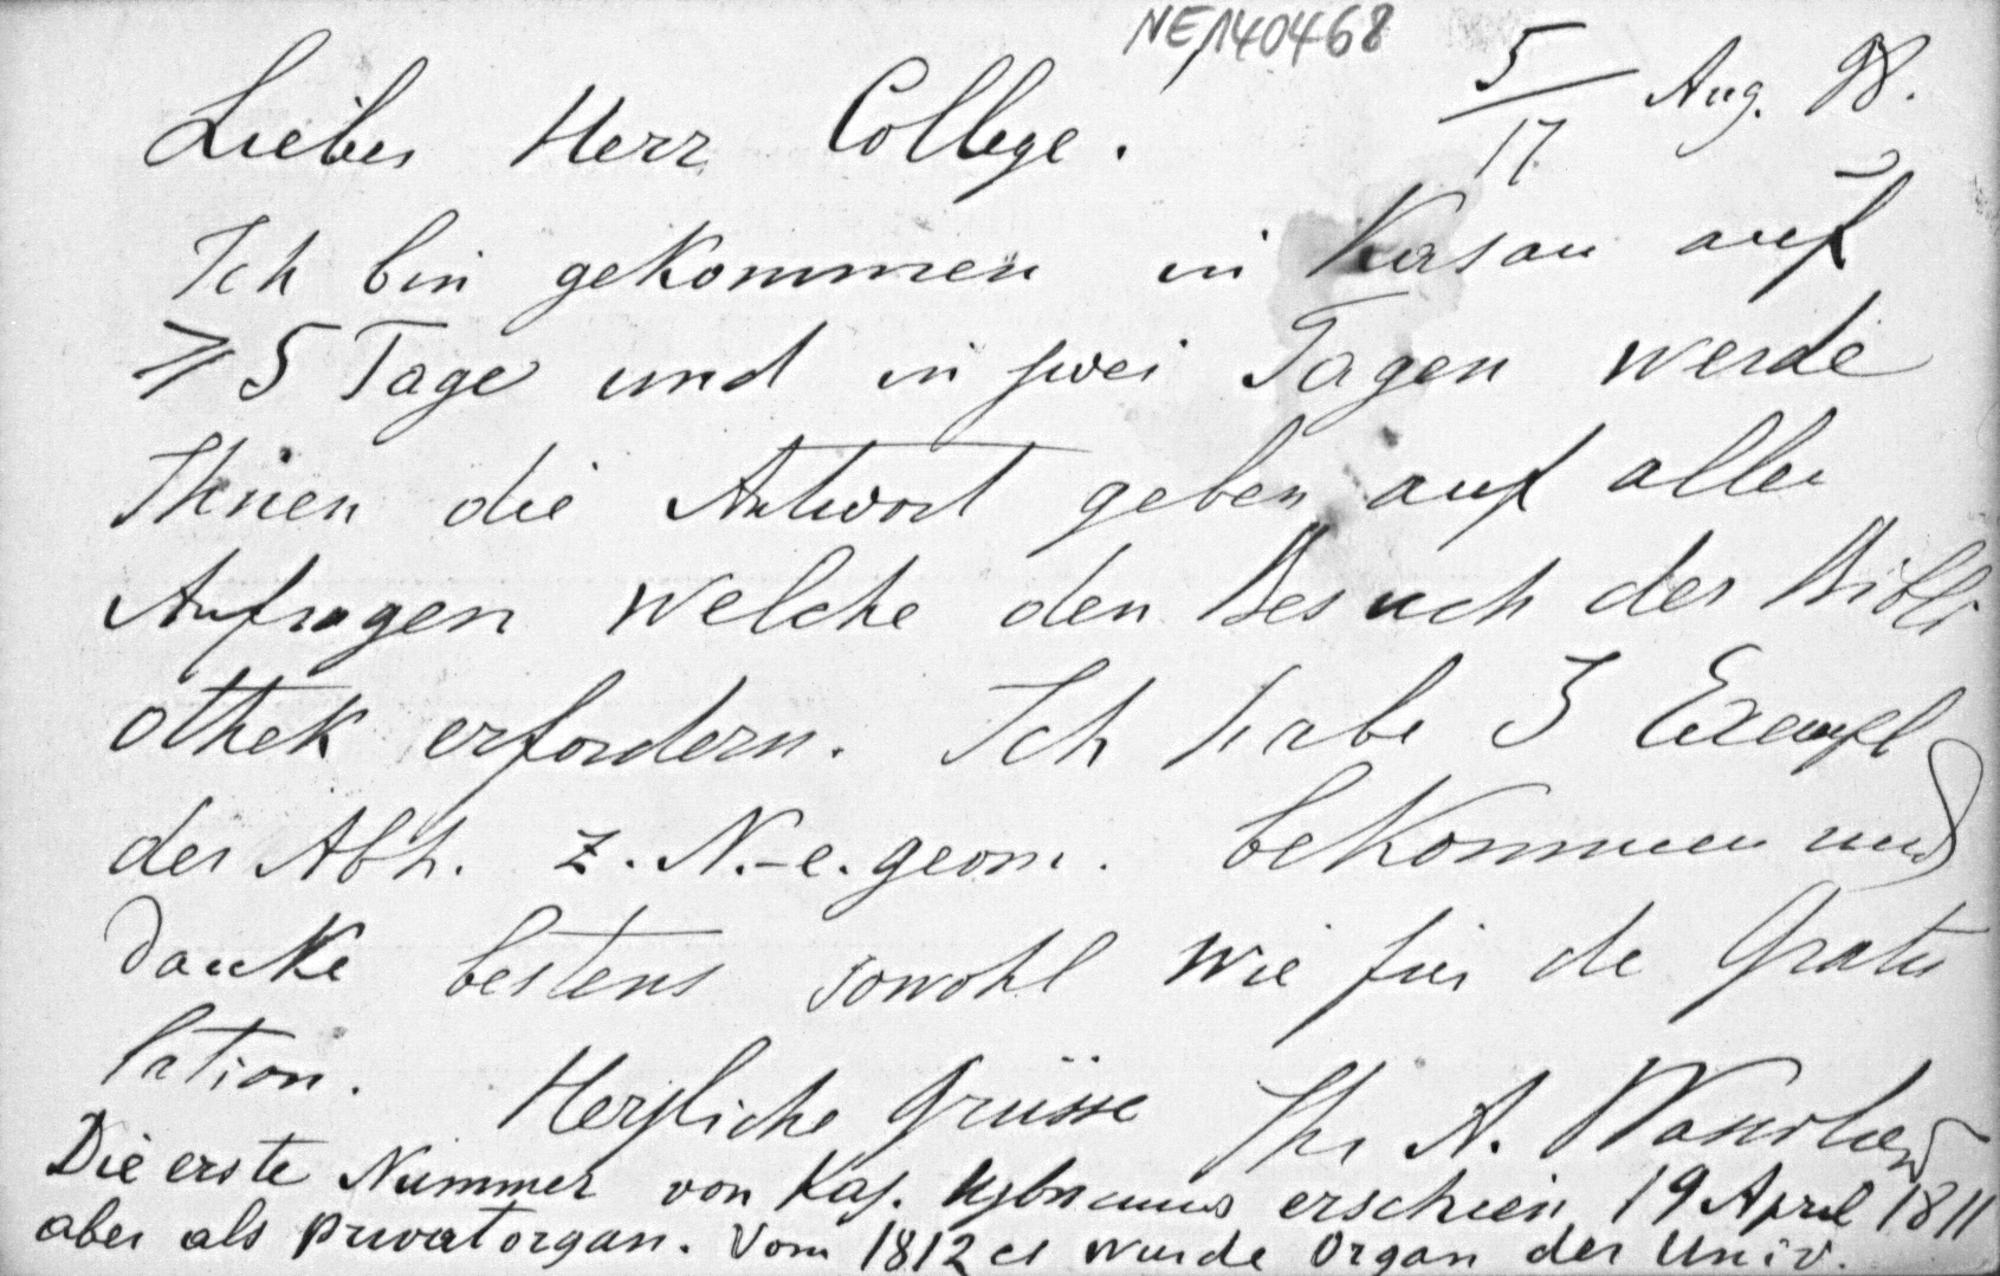 NE 140468
5/17 Aug. 98.
Lieber Herr College.
Ich bin gekommen in Kasan auf
⩾ 5 Tage und in zwei Tagen werde
Ihnen die Antwort geben auf allen
Anfragen welche den Besuch der Bibli
othek erfordern. Ich habe 3 Exempl
der Abh. z. N.-e. geom. bekommen und
danke bestens sowohl wie für die Gratu
lation. Herzliche Grüsse Ihr A. Wassiliew
Die erste Nummer von Kaz. erschien 19 April 1811
aber als privatorgan. Vom 1812 es wurde Organ der Univ.